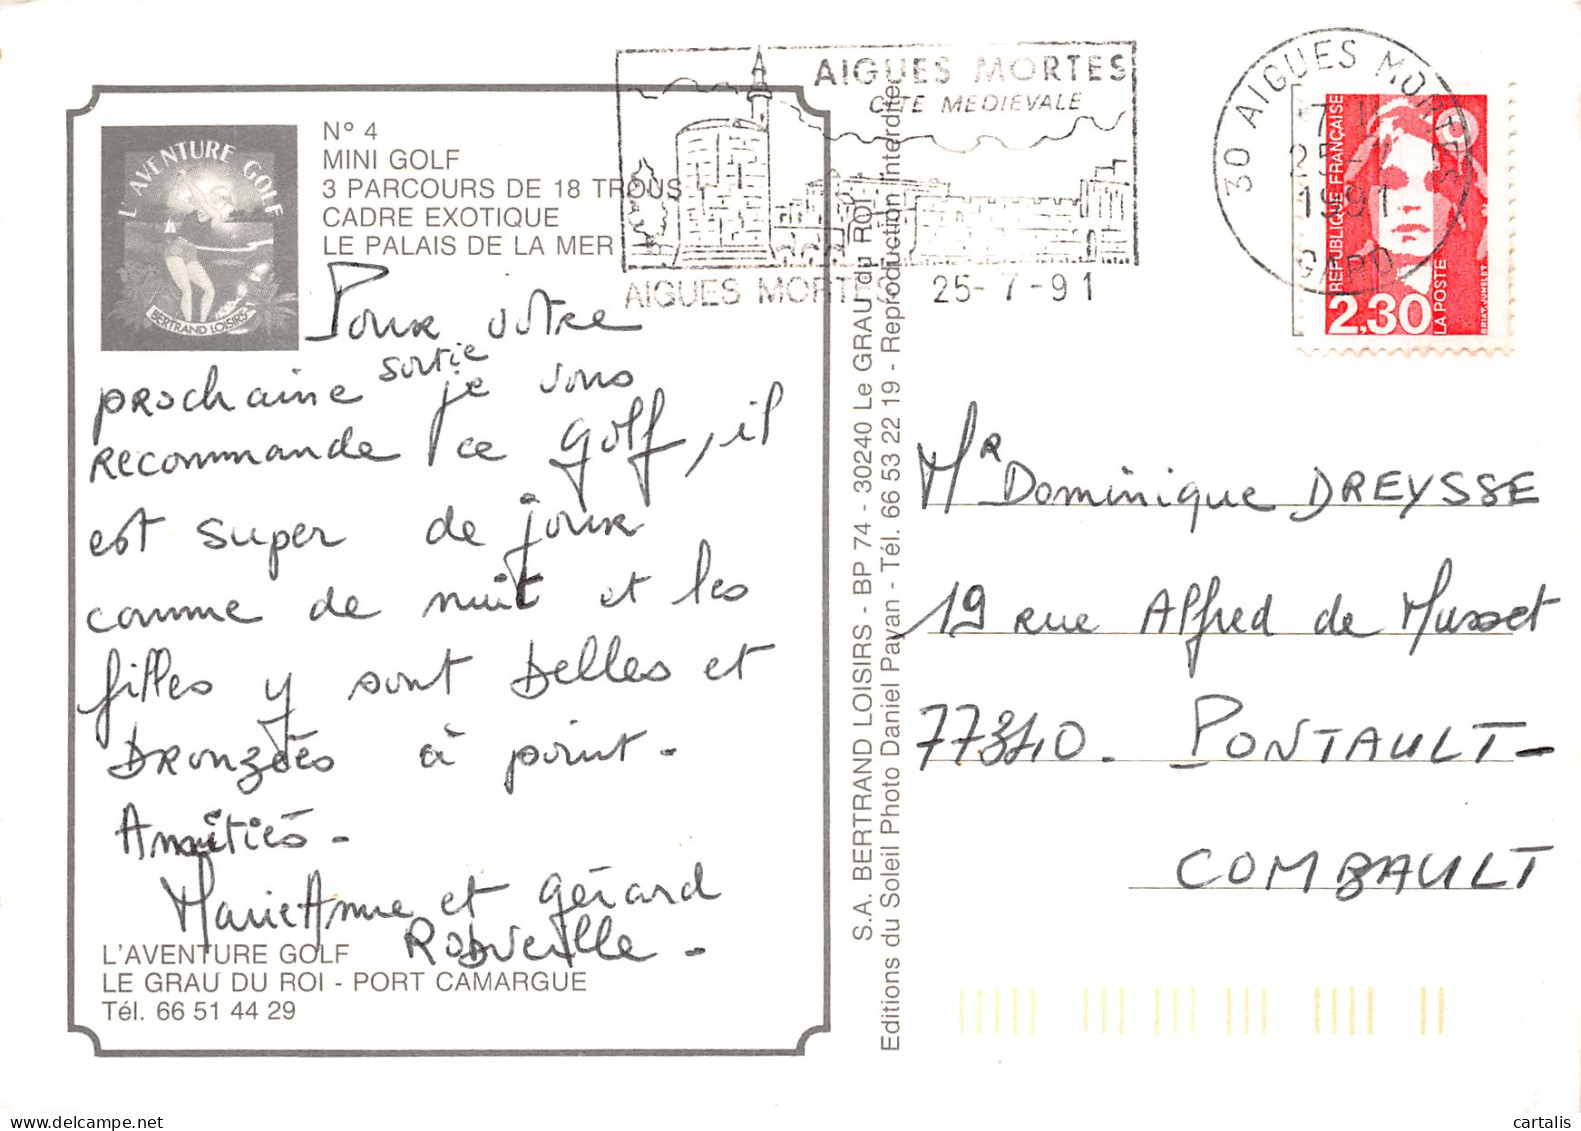 L'AVENTURE GOLF
BERTRAND LOISIRS
N° 4
MINI GOLF
3 PARCOURS DE 18 TROUS
CADRE EXOTIQUE
LE PALAIS DE LA MER
Pour votre
prochaine sortie je vous
recommande ce golf, il
est super de jour
comme de nuit et les
filles y sont belles et
bronzées à point.
Amitiés.
Marie Anne et Gérard
Robveille.
L'AVENTURE GOLF
LE GRAU DU ROI - PORT CAMARGUE
Tél. 66 51 44 29
S.A. BERTRAND LOISIRS - BP 74 - 30240 Le GRAU du ROI
Editions du Soleil Photo Daniel Payan - Tél. 66 53 22 19 - Reproduction Interdite
AIGUES MORTES
CITE MEDIEVALE
AIGUES MORTES 25-7-91
30 AIGUES MORTES
25-7
1991
GARD
RÉPUBLIQUE FRANÇAISE
2,30
LA POSTE
BRIAT-JUMELET
Mr Dominique DREYSSE
19 rue Alfred de Musset
77340. PONTAULT-
COMBAULT
cartalis
www.delcampe.net